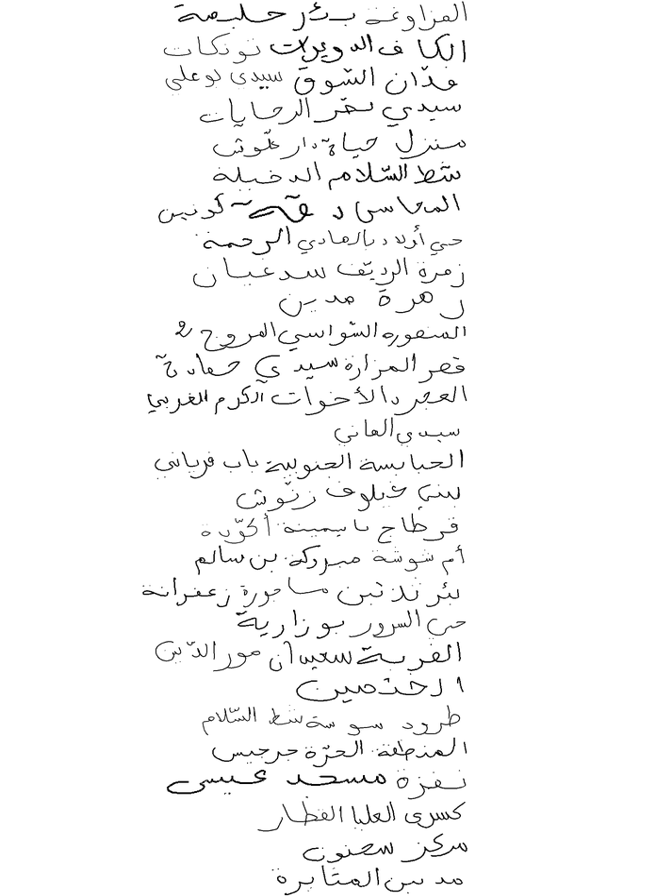 الفزاوغة بئر حليمة
الكاف الدويرات نونكات
فدّان السّوق سيدي بوعلي
سيدي نصر الرحايات
منزل حياة دار علّوش
شط السّلام الدخيلة
المحاسن دقة كونين
حي أولاد بالهادي الرحمة
زمرة الرديّف سدغيان
زهرة مدين
المنصورة الشواسي المروج 2
قصر المزارة سيدي حمادة
العجرد الأخوات الكرم الغربي
سيدي الهاني
الحبابسة الجنوبية باب فرياني
بني غيلوف زنّوش
قرطاج ياسمينة أكوّدة
أم شوشة مبروكة بن سالم
بئر تدنين مساحورة زعفرانة
حي السرور بوزارية
القرية سعيدان مور الدّين
الرخثمين
طرود سوسة شط السّلام
المنطقة الحرّة جرجيس
نفزة مسجد عيسى
كسرى العليا القطار
مركز سحنون
مدنين المثابرة